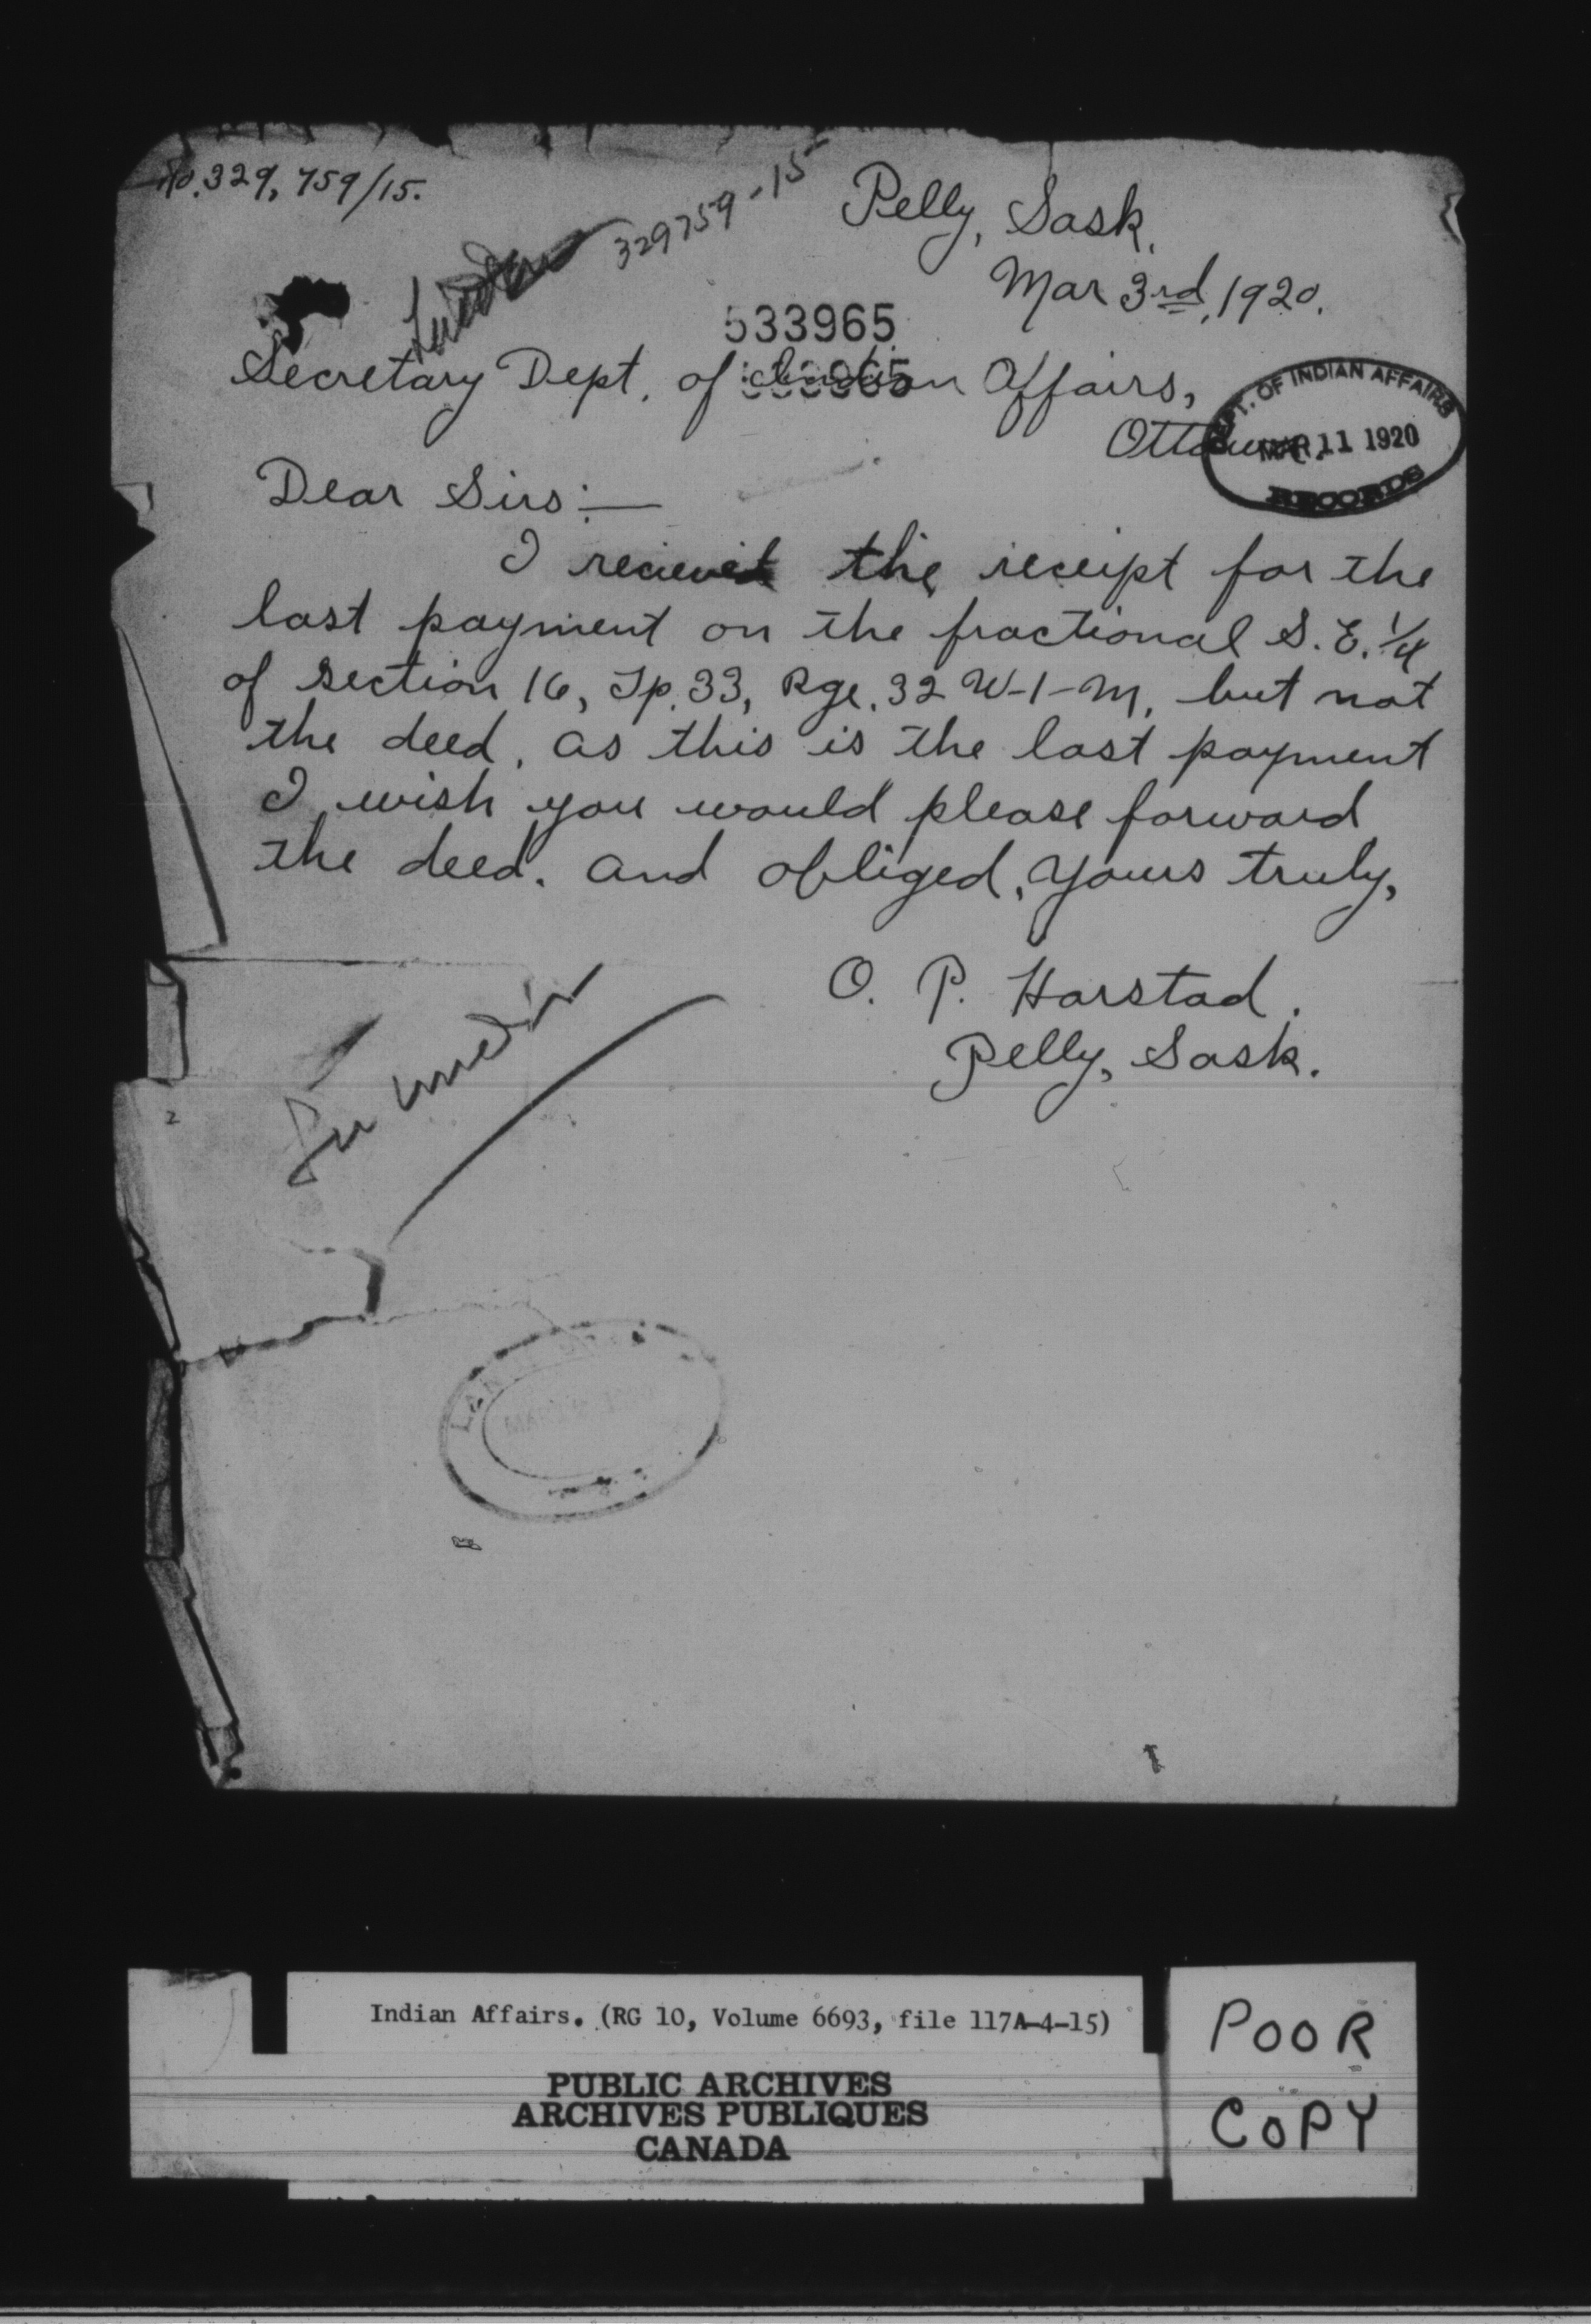 No. 329,759/15.
329759-15
Pelly, Sask.
Mar 3rd, 1920.
533965
Secretary Dept. of Indian Affairs,
Ottawa.
DEPT. OF INDIAN AFFAIRS
MAR 11 1920
RECORDS
Dear Sirs:—
I recieved the receipt for the
last payment on the fractional S. E. 1/4
of section 16, Tp. 33, Rge. 32 W-1-M, but not
the deed, as this is the last payment
I wish you would please forward
the deed. and obliged, yours truly,
O. P. Harstad.
Pelly, Sask.
2
Indian Affairs. (RG 10, Volume 6693, file 117A-4-15)
PUBLIC ARCHIVES
ARCHIVES PUBLIQUES
CANADA
POOR
COPY